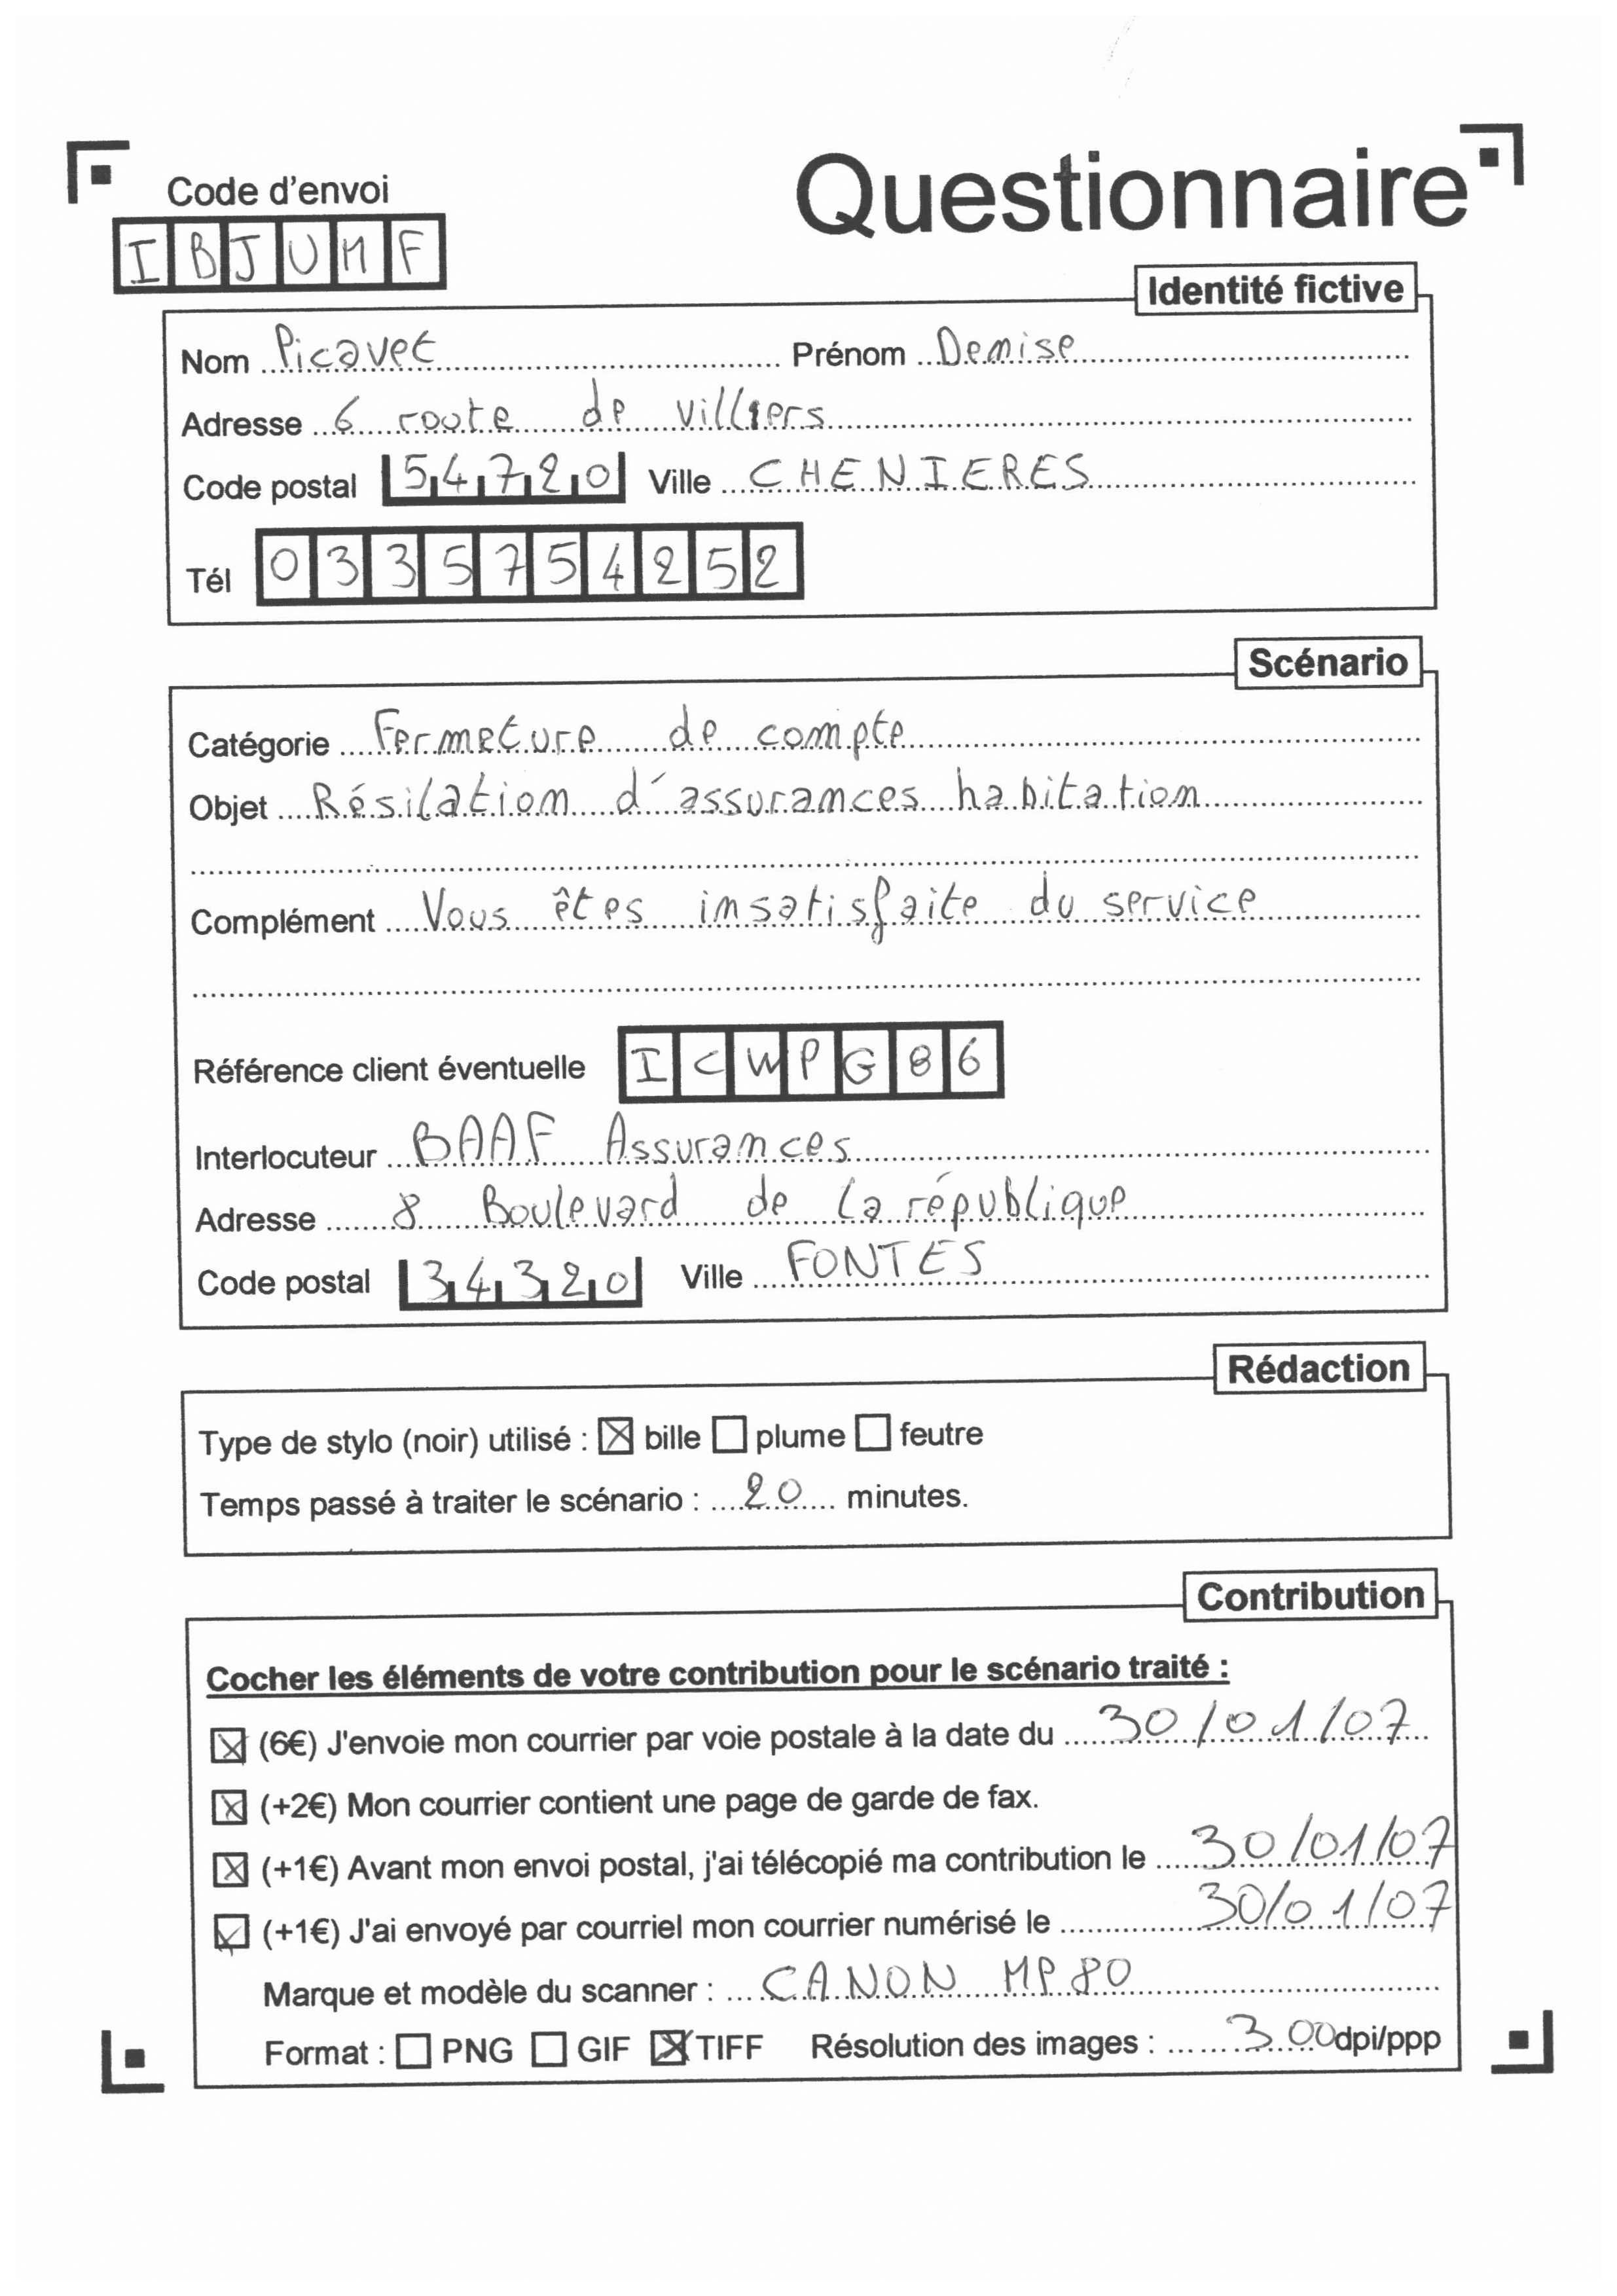 Questionnaire
Code d'envoi
IBJUMF
Identité fictive
Nom Picavet Prénom Denise
Adresse 6 route de villiers
Code postal 54720 Ville CHENIERES
Tél 0335754252
Scénario
Catégorie Fermeture de compte
Objet Résilation d'assurances habitation
Complément Vous êtes insatisfaite du service
Référence client éventuelle ICWPG86
Interlocuteur BAAF Assurances
Adresse 8 Boulevard de la république
Code postal 34320 Ville FONTES
Rédaction
Type de stylo (noir) utilisé : ☒ bille ☐ plume ☐ feutre
Temps passé à traiter le scénario : 20 minutes.
Contribution
Cocher les éléments de votre contribution pour le scénario traité :
☒ (6€) J'envoie mon courrier par voie postale à la date du 30/01/07
☒ (+2€) Mon courrier contient une page de garde de fax.
☒ (+1€) Avant mon envoi postal, j'ai télécopié ma contribution le 30/01/07
☒ (+1€) J'ai envoyé par courriel mon courrier numérisé le 30/01/07
Marque et modèle du scanner : CANON MP80
Format : ☐ PNG ☐ GIF ☒ TIFF Résolution des images : 300 dpi/ppp